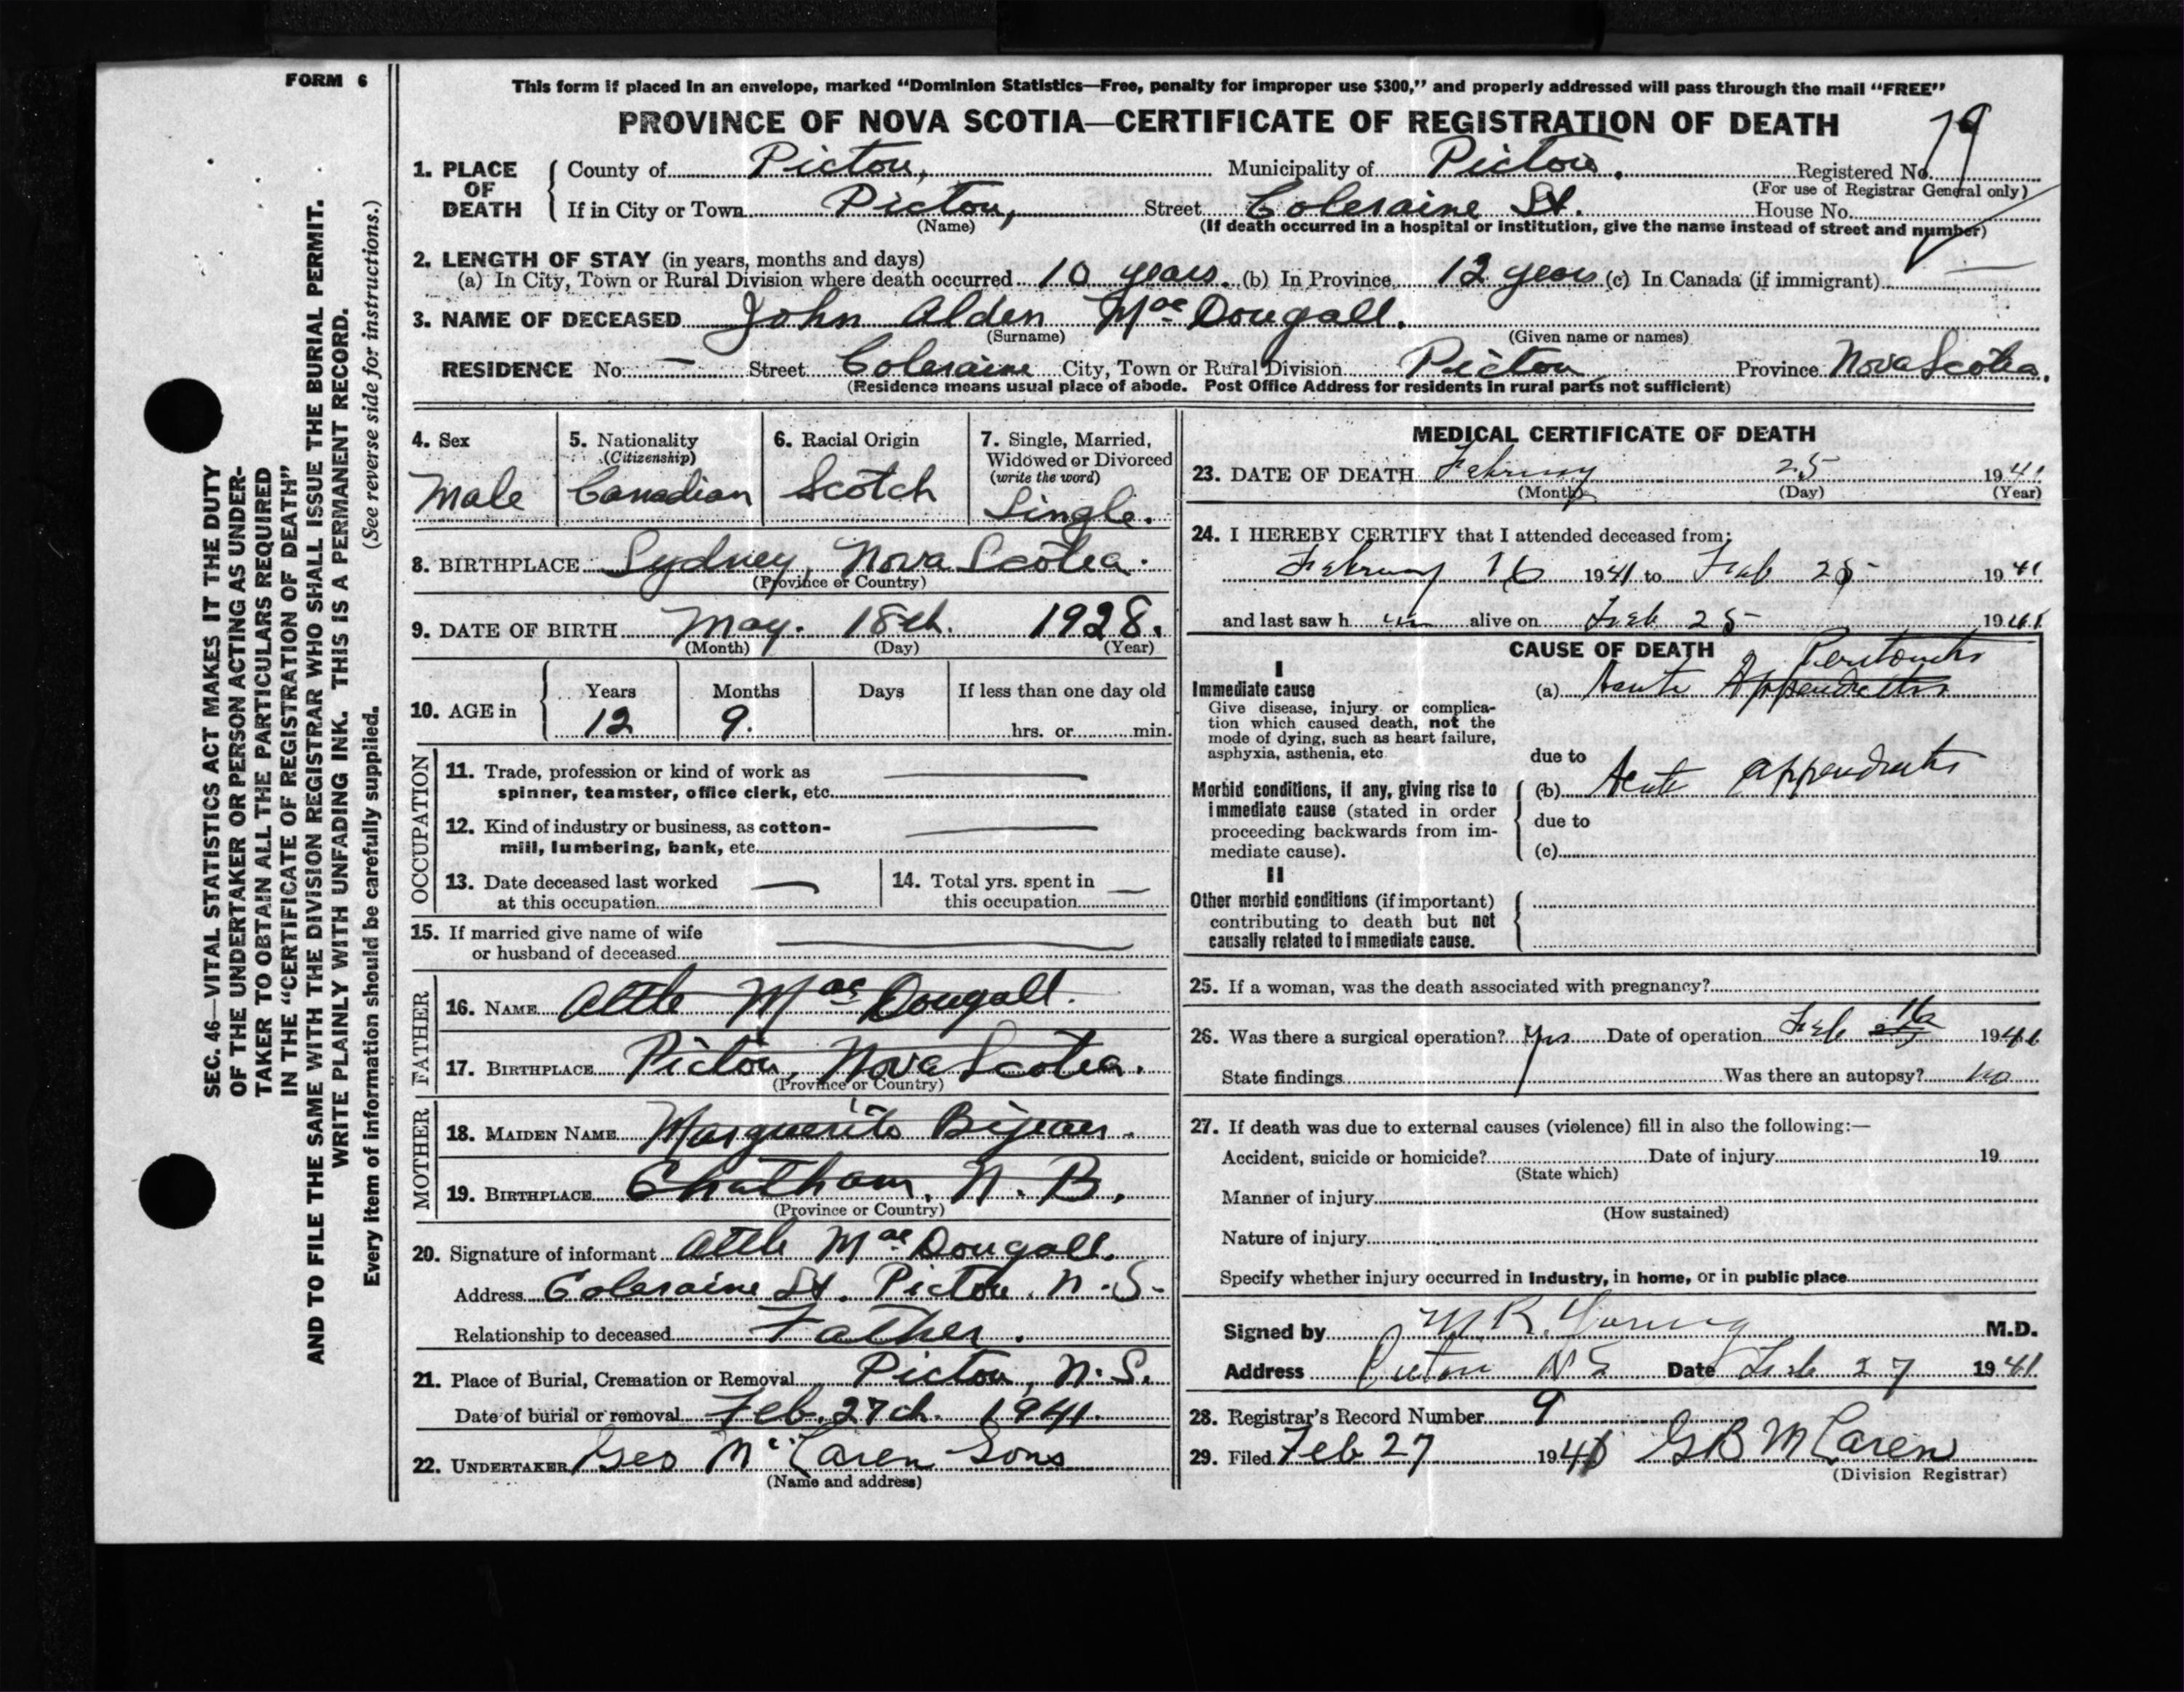 FORM 6
This form if placed in an envelope, marked "Dominion Statistics—Free, penalty for improper use $300," and properly addressed will pass through the mail "FREE"
PROVINCE OF NOVA SCOTIA—CERTIFICATE OF REGISTRATION OF DEATH
1. PLACE OF DEATH
County of Pictou, Municipality of Pictou. Registered No. 79
(For use of Registrar General only)
If in City or Town Pictou, Street Coleraine St. House No.
(Name) (If death occurred in a hospital or institution, give the name instead of street and number)
2. LENGTH OF STAY (in years, months and days)
(a) In City, Town or Rural Division where death occurred 10 years. (b) In Province 12 years (c) In Canada (if immigrant) —
3. NAME OF DECEASED John Alden MacDougall.
(Surname) (Given name or names)
RESIDENCE No. — Street Coleraine City, Town or Rural Division Pictou Province Nova Scotia.
(Residence means usual place of abode. Post Office Address for residents in rural parts not sufficient)
4. Sex
Male
5. Nationality
(Citizenship)
Canadian
6. Racial Origin
Scotch
7. Single, Married,
Widowed or Divorced
(write the word)
Single.
8. BIRTHPLACE Sydney, Nova Scotia.
(Province or Country)
9. DATE OF BIRTH May. 18th. 1928.
(Month) (Day) (Year)
10. AGE in
Years Months Days If less than one day old
12 9. hrs. or min.
OCCUPATION
11. Trade, profession or kind of work as
spinner, teamster, office clerk, etc. —
12. Kind of industry or business, as cotton-
mill, lumbering, bank, etc. —
13. Date deceased last worked
at this occupation —
14. Total yrs. spent in
this occupation —
15. If married give name of wife
or husband of deceased —
FATHER
16. NAME Attle MacDougall.
17. BIRTHPLACE Pictou, Nova Scotia.
(Province or Country)
MOTHER
18. MAIDEN NAME Marguerite
19. BIRTHPLACE Chatham, N. B.
(Province or Country)
20. Signature of informant Attle MacDougall.
Address Coleraine St. Pictou, N.S.
Relationship to deceased Father.
21. Place of Burial, Cremation or Removal Pictou, N.S.
Date of burial or removal Feb. 27th. 1941.
22. UNDERTAKER Geo McLaren Sons
(Name and address)
MEDICAL CERTIFICATE OF DEATH
23. DATE OF DEATH February 25 1941
(Month) (Day) (Year)
24. I HEREBY CERTIFY that I attended deceased from:
February 16 1941 to Feb 25 1941
and last saw him alive on Feb 25 1941
CAUSE OF DEATH
I
Immediate cause
Give disease, injury or complica-
tion which caused death, not the
mode of dying, such as heart failure,
asphyxia, asthenia, etc
(a) Acute Appendicitis Peritonitis
due to
Morbid conditions, if any, giving rise to
immediate cause (stated in order
proceeding backwards from im-
mediate cause).
(b) Acute appendicitis
due to
(c)
II
Other morbid conditions (if important)
contributing to death but not
causally related to immediate cause.
25. If a woman, was the death associated with pregnancy?
26. Was there a surgical operation? Yes Date of operation Feb 16 1941
State findings Was there an autopsy? no
27. If death was due to external causes (violence) fill in also the following:—
Accident, suicide or homicide? Date of injury 19
(State which)
Manner of injury
(How sustained)
Nature of injury
Specify whether injury occurred in industry, in home, or in public place
Signed by M.R. Young M.D.
Address Pictou N S Date Feb 27 1941
28. Registrar's Record Number 9
29. Filed Feb 27 1941 G B McLaren
(Division Registrar)
SEC. 46—VITAL STATISTICS ACT MAKES IT THE DUTY
OF THE UNDERTAKER OR PERSON ACTING AS UNDER-
TAKER TO OBTAIN ALL THE PARTICULARS REQUIRED
IN THE "CERTIFICATE OF REGISTRATION OF DEATH"
AND TO FILE THE SAME WITH THE DIVISION REGISTRAR WHO SHALL ISSUE THE BURIAL PERMIT.
WRITE PLAINLY WITH UNFADING INK. THIS IS A PERMANENT RECORD.
Every item of information should be carefully supplied. (See reverse side for instructions.)